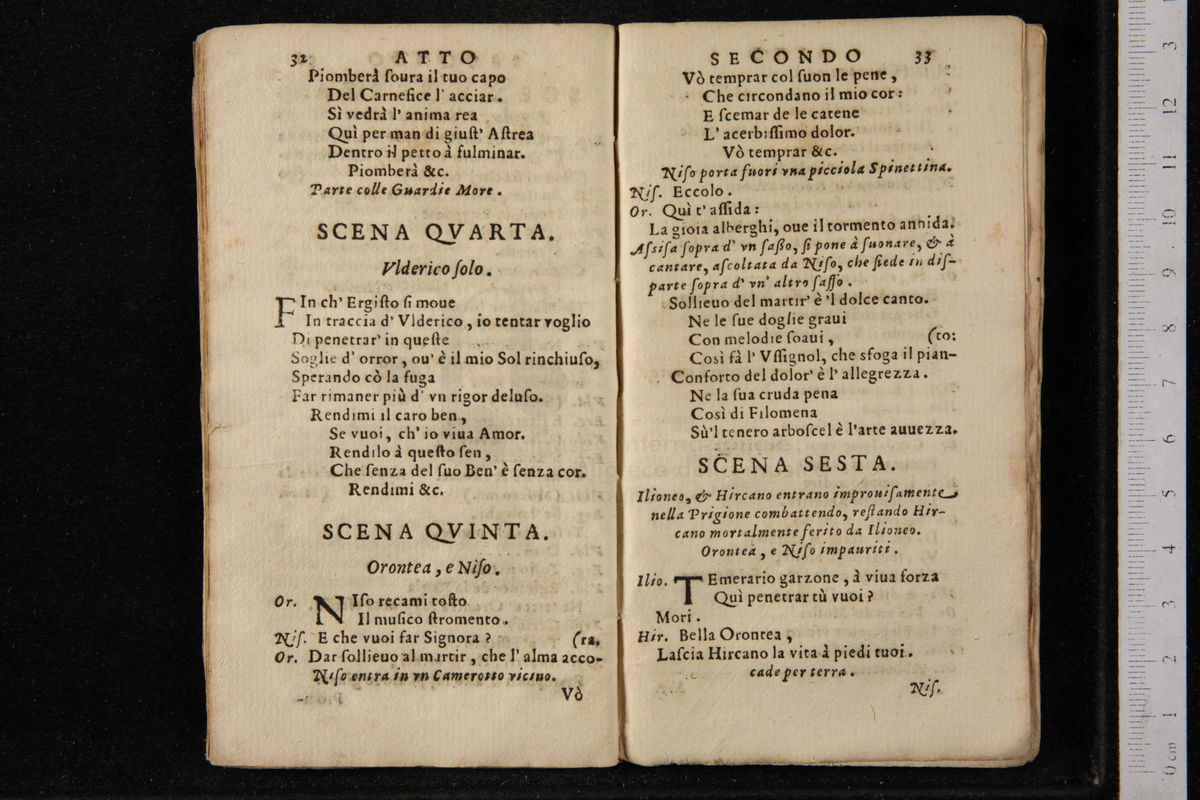 32 ATTO
Piomberà ſoura il tuo capo
Del Carnefice l' acciar.
Sì vedrà l' anima rea
Quì per man di giuſt' Aſtrea
Dentro il petto à fulminar.
Piomberà &c.
Parte colle Guardie More.
SCENA QVARTA.
Vlderico ſolo.
FIn ch' Ergiſto ſi moue
In traccia d' Vlderico, io tentar voglio
Di penetrar' in queſte
Soglie d' orror, ou' è il mio Sol rinchiuſo,
Sperando cò la fuga
Far rimaner più d' vn rigor deluſo.
Rendimi il caro ben,
Se vuoi, ch' io viua Amor.
Rendilo à queſto ſen,
Che ſenza del ſuo Ben' è ſenza cor.
Rendimi &c.
SCENA QVINTA.
Orontea, e Niſo.
Or. NIſo recami toſto
Il muſico ſtromento.
Niſ. E che vuoi far Signora? (ra.
Or. Dar ſollieuo al martir, che l' alma acco-
Niſo entra in vn Camerotto vicino.
Vò
SECONDO 33
Vò temprar col ſuon le pene,
Che circondano il mio cor:
E ſcemar de le catene
L' acerbiſſimo dolor.
Vò temprar &c.
Niſo porta fuori vna picciola Spinettina.
Niſ. Eccolo.
Or. Quì t' aſſida:
La gioia alberghi, oue il tormento annida.
Aſſiſa ſopra d' vn ſaßo, ſi pone à ſuonare, & à
cantare, aſcoltata da Niſo, che ſiede in diſ-
parte ſopra d' vn' altro ſaſſo.
Sollieuo del martir' è 'l dolce canto.
Ne le ſue doglie graui
Con melodie ſoaui, (to:
Così fà l' Vſſignol, che sfoga il pian-
Conforto del dolor' è l' allegrezza.
Ne la ſua cruda pena
Così di Filomena
Sù'l tenero arboſcel è l'arte auuezza.
SCENA SESTA.
Ilioneo, & Hircano entrano improuiſamente
nella Prigione combattendo, reſtando Hir-
cano mortalmente ferito da Ilioneo.
Orontea, e Niſo impauriti.
Ilio. TEmerario garzone, à viua forza
Quì penetrar tù vuoi?
Mori.
Hir. Bella Orontea,
Laſcia Hircano la vita à piedi tuoi.
cade per terra.
Niſ.
0 cm 1 2 3 4 5 6 7 8 9 10 11 12 3